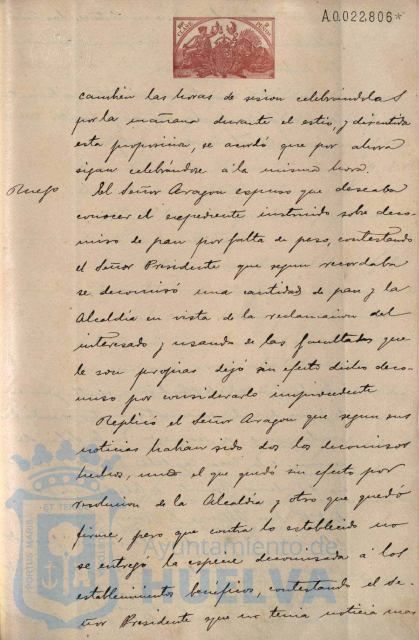 A.0.022,806*
cambien las horas de sesion celebrándolas
por la mañana durante el estío, y discutida
esta proposicion, se acordó que por ahora
sigan celebrándose á la misma hora.
Ruego
El Señor Aragon expuso que deseaba
conocer el expediente instruido sobre deco-
miso de pan por falta de peso, contestando
el Señor Presidente que segun recordaba
se decomisó una cantidad de pan y la
Alcaldía en vista de la reclamacion del
interesado y usando de las facultades que
le son propias dejó sin efecto dicho deco-
miso por considerarlo improcedente
Replicó el Señor Aragon que segun sus
noticias habian sido dos los decomisos
hechos, uno el que quedó sin efecto por
resolucion de la Alcaldía y otro que quedó
firme, pero que contra lo establecido no
se entregó la especie decomisada á los
establecimientos benéficos, contestando el Se-
ñor Presidente que no tenia noticia mas
Ayuntamiento de
HUELVA